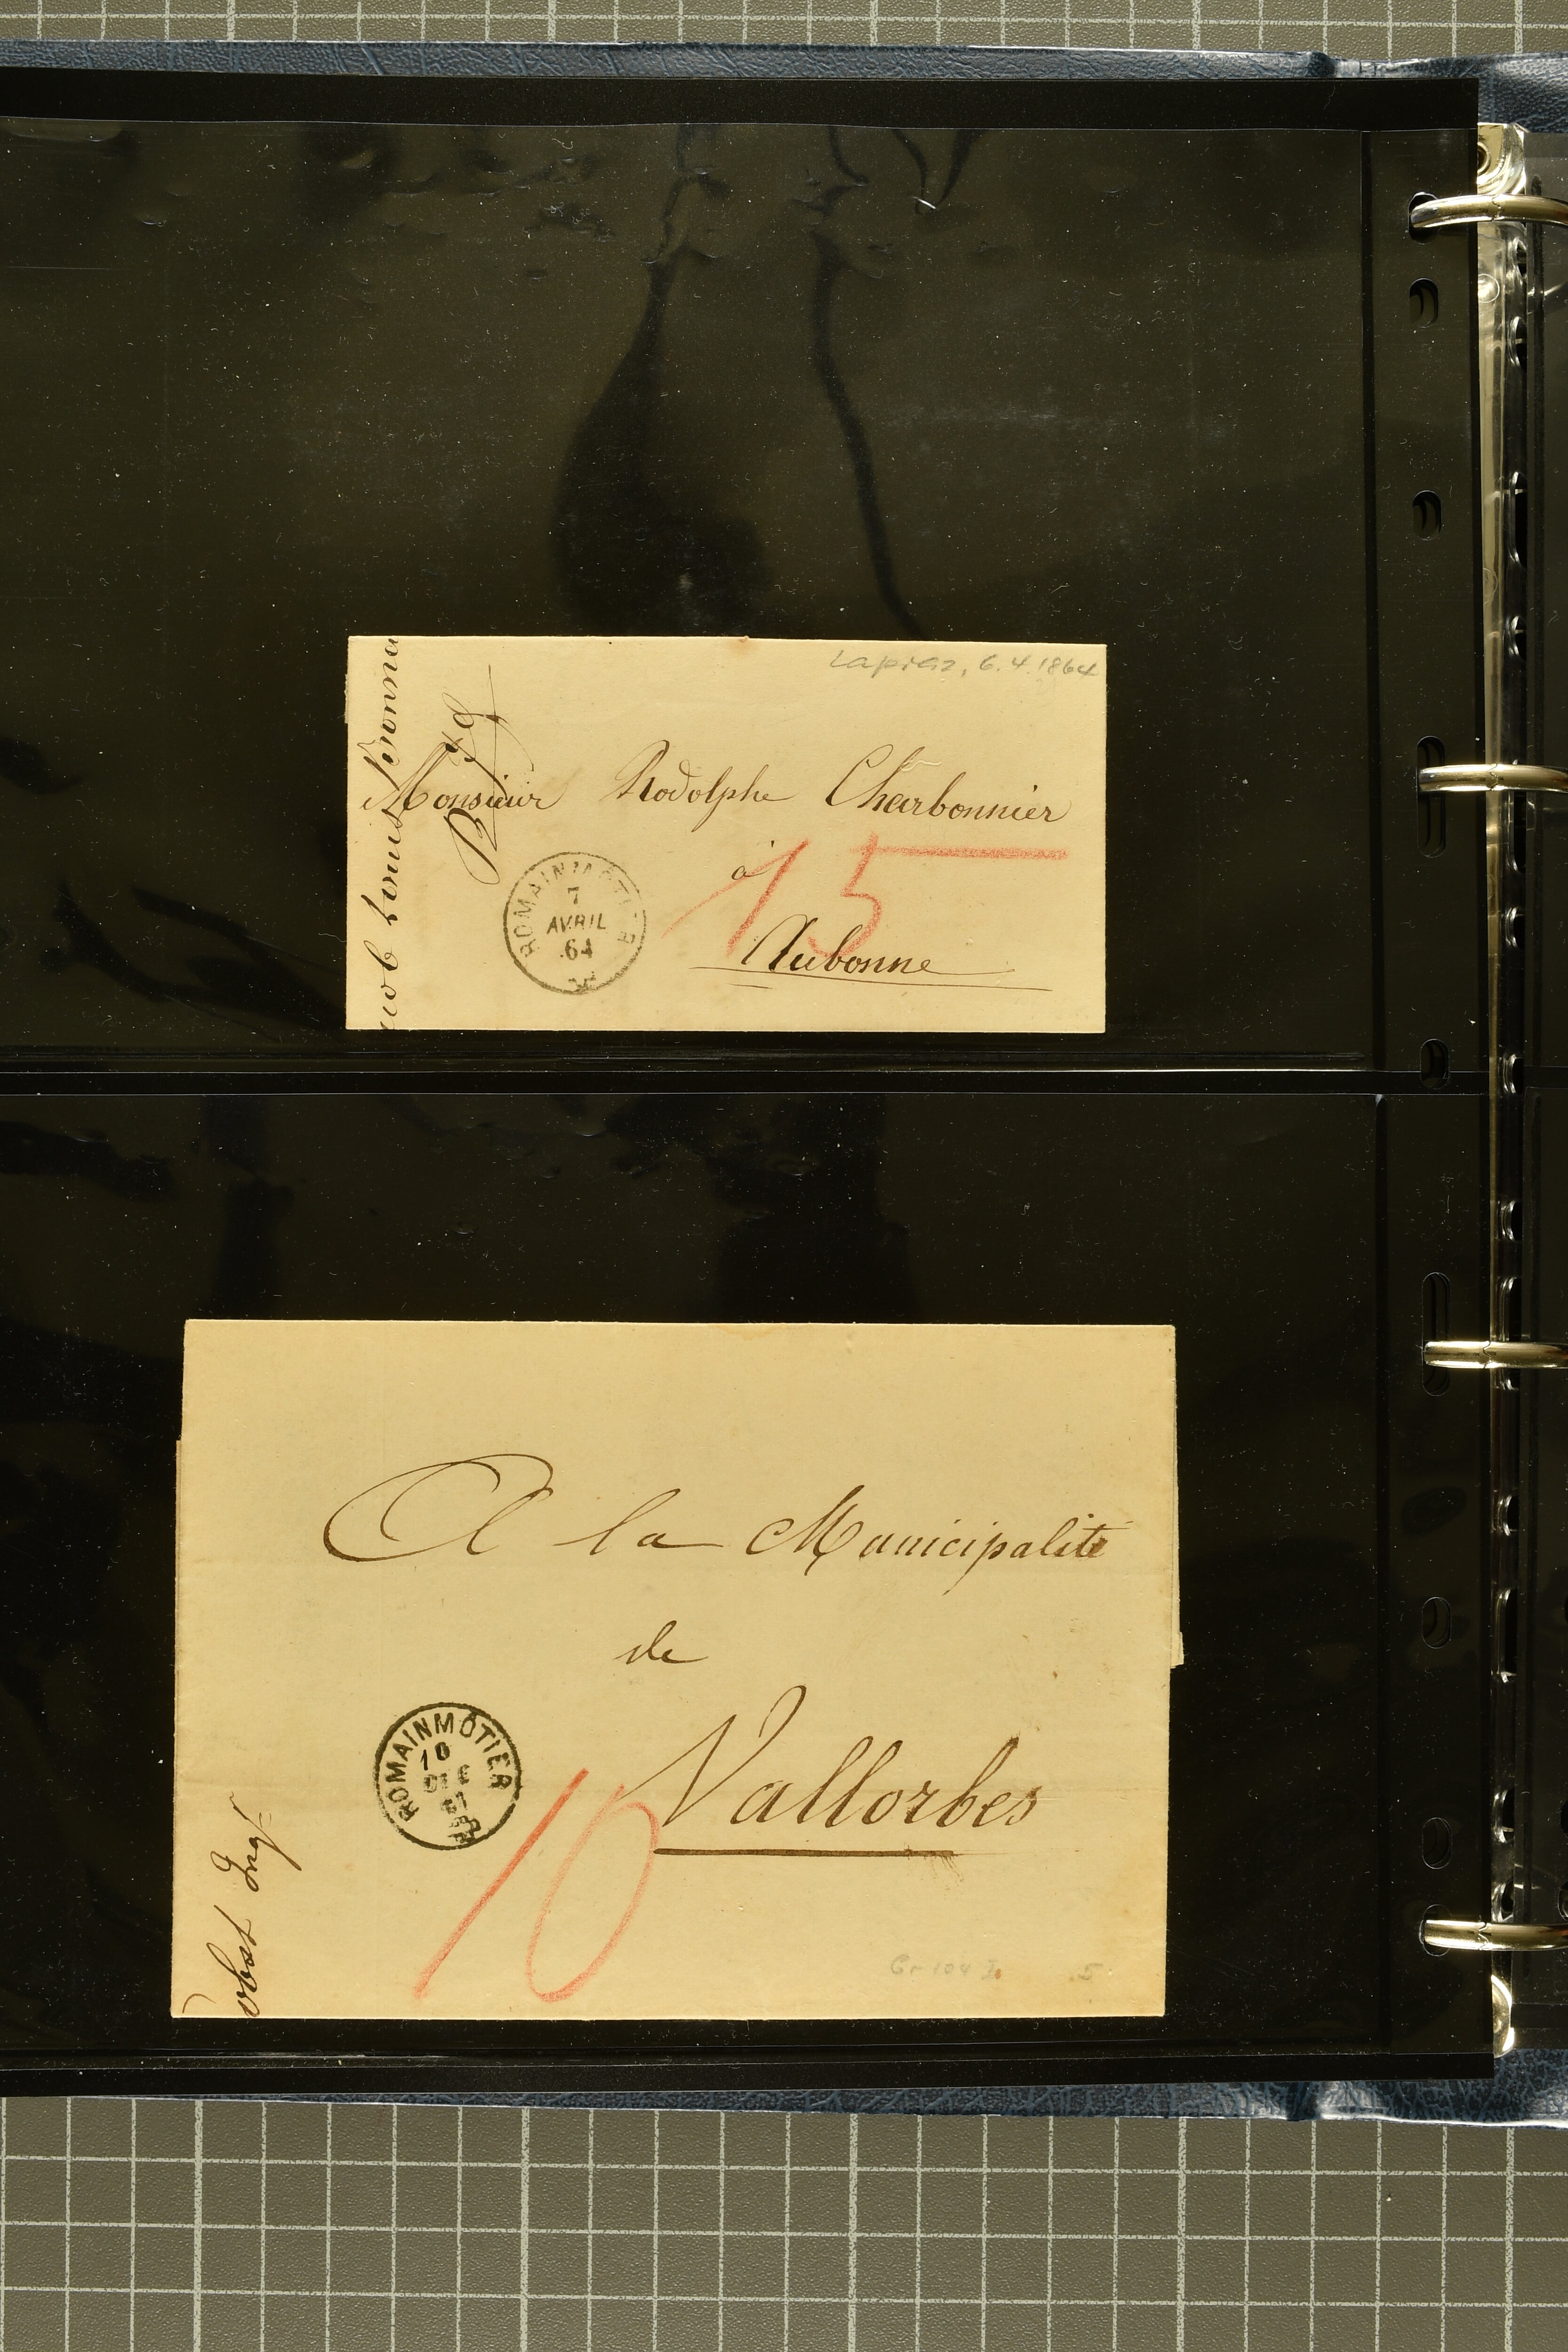 Lapraz, 6.4.1864
Monsieur Rodolphe Charbonnier
à
15
Aubonne
ROMAINMOTIER
7
AVRIL
64
A la Municipalité
de
Vallorbes
ROMAINMÔTIER
10
10
Gr 104 I. 5